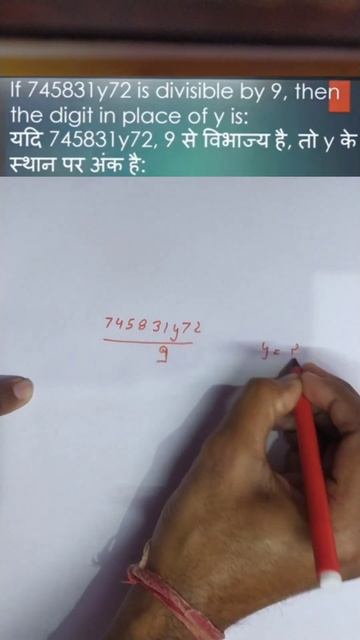 If 745831y72 is divisible by 9, then
the digit in place of y is:
यदि 745831y72, 9 से विभाज्य है, तो y के
स्थान पर अंक है:
745831y72
9
y = ?